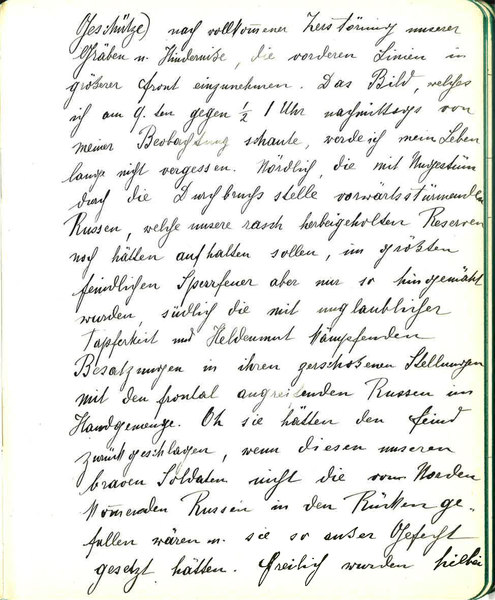 Geschütze) nach vollkom̄ener Zerstörung unserer
Gräben u. Hindernisse, die vorderen Linien in
größerer Front einzunehmen. Das Bild, welches
ich am 9. ten gegen ½ 1 Uhr nachmittags von
meiner Beobachtung schaute, werde ich mein Leben
lange nicht vergessen. Nördlich, die mit Ungestüm
durch die Durchbruchsstelle vorwärtsstürmenden
Russen, welche unsere rasch herbeigeholten Reserven
noch hätten aufhalten sollen, im größten
feindlichen Sperrfeuer aber nur so hingemäht
wurden, südlich die mit unglaublicher
Tapferkeit und Heldenmut kämpfenden
Besatzungen in ihren zerschossenen Stellungen
mit den frontal angreifenden Russen im
Handgemenge. Oh sie hätten den Feind
zurückgeschlagen, wenn diesen unseren
braven Soldaten nicht die vom Norden
kom̄enden Russen in den Rücken ge-
fallen wären u. sie so außer Gefecht
gesetzt hätten. Freilich wurden hiebei